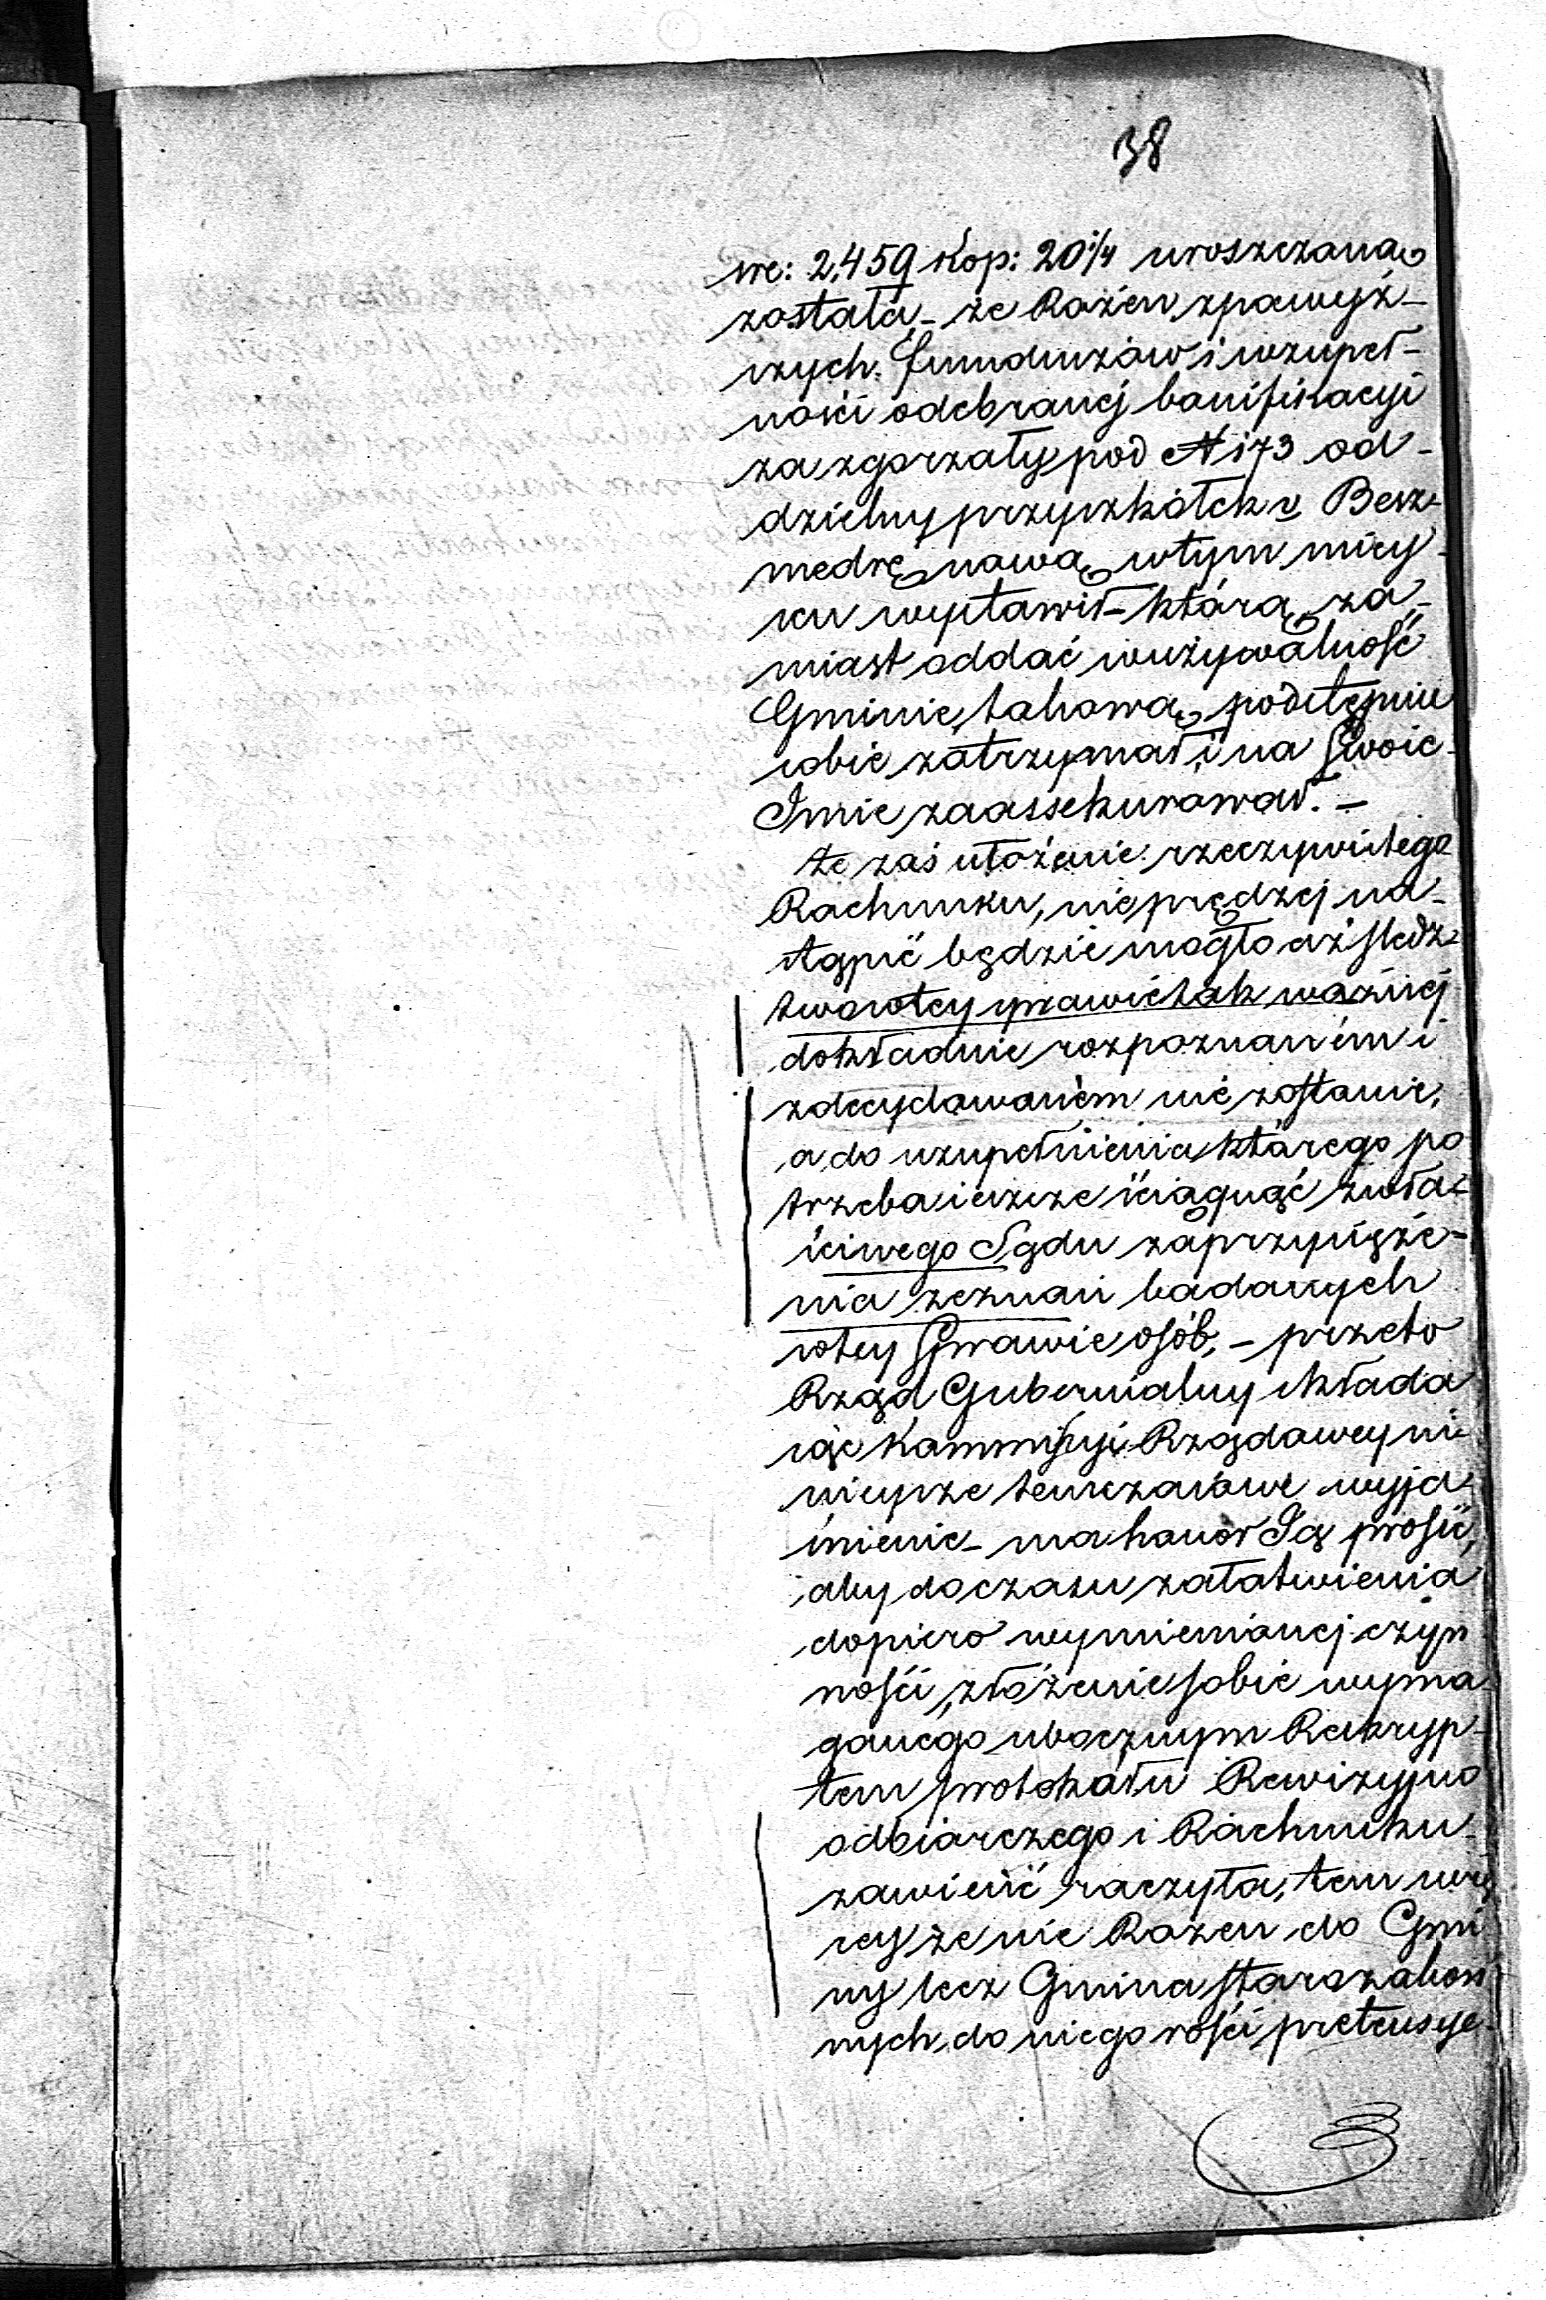 38
sre: 2,459 kop: 20 1/4 uroszczana
została – że Rozen zpowyż-
szych funduszów i wzupeł-
ności odebranej bonifikacyi
za zgorzały pod N 173 od-
dzielny przyszkółek v Besz-
medrę nową wtym miey-
scu wystawił – którą za-
miast oddać wużywalność
Gminie, takową podstępnie
sobie zatrzymał i na Swoie
Imie zaassekurował. –
że zaś ułożenie rzeczywistego
Rachunku, nieprędzej na-
stąpić będzie mogło aż śledz-
two wtey sprawie tak ważnej
dokładnie rozpoznaném i
zdecydowaném nie zostanie,
a do uzupełnienia którego po
trzeba ieszcze ściągnąć zwła-
ściwego Sądu zaprzysięże-
nia zeznań badanych
wtey Sprawie osób, – przeto
Rząd Gubernialny składa
iąc Kommissyi Rządowey ni-
nieysze temczasowe wyja-
śnienie – ma honor Ią prosić,
aby do czasu załatwienia
dopiero wymienionej czyn
ności, złożenie sobie wyma-
ganego ubocznym Reskryp-
tem protokołu Rewizyjno
odbiorczego i Rachunku
zawiesić raczyła, tem wię
cey że nie Rozen do Gmi
ny lecz Gmina starozakon
nych do niego rości pretensye